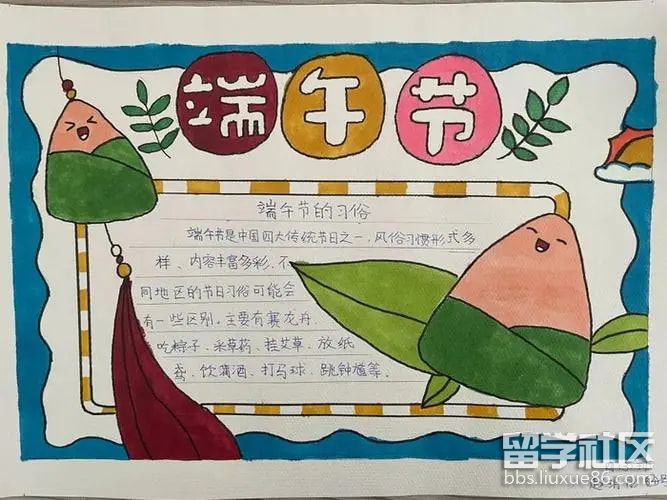 端午节
端午节的习俗
端午节是中国四大传统节日之一，风俗习惯形式多
样、内容丰富多彩，不
同地区的节日习俗可能会
有一些区别，主要有赛龙舟、
吃粽子、采草药、挂艾草、放纸
鸢、饮蒲酒、打马球、跳钟馗等。
留学社区
bbs.liuxue86.com